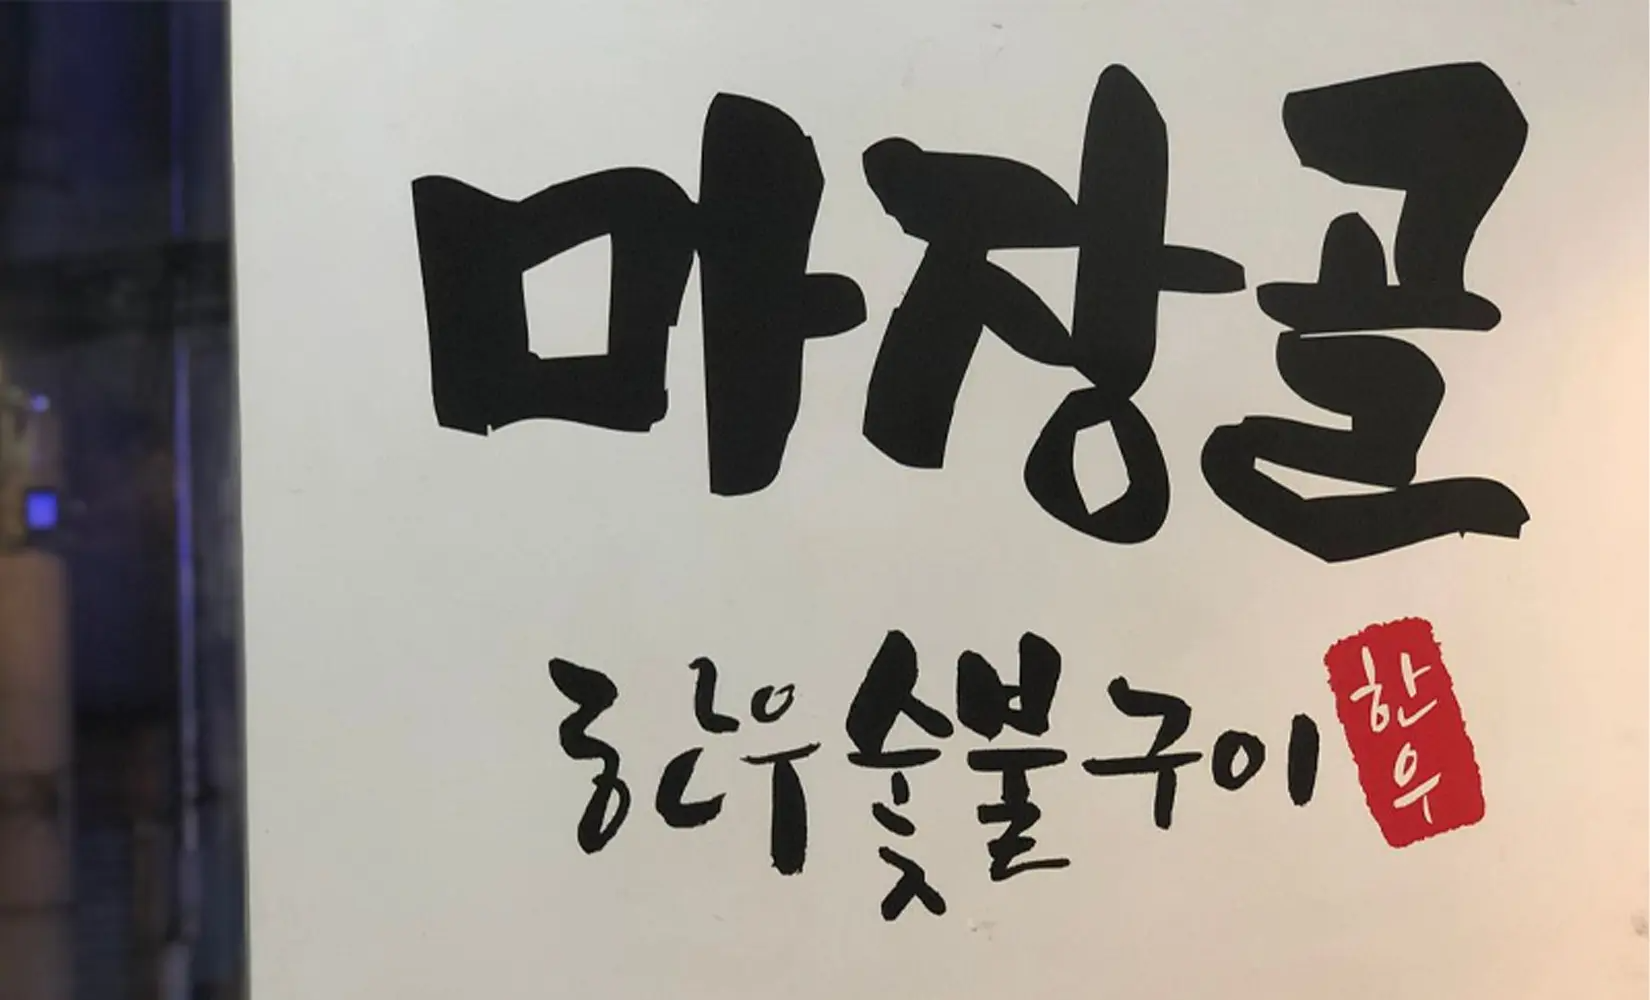 마장골
한우숯불구이
한우